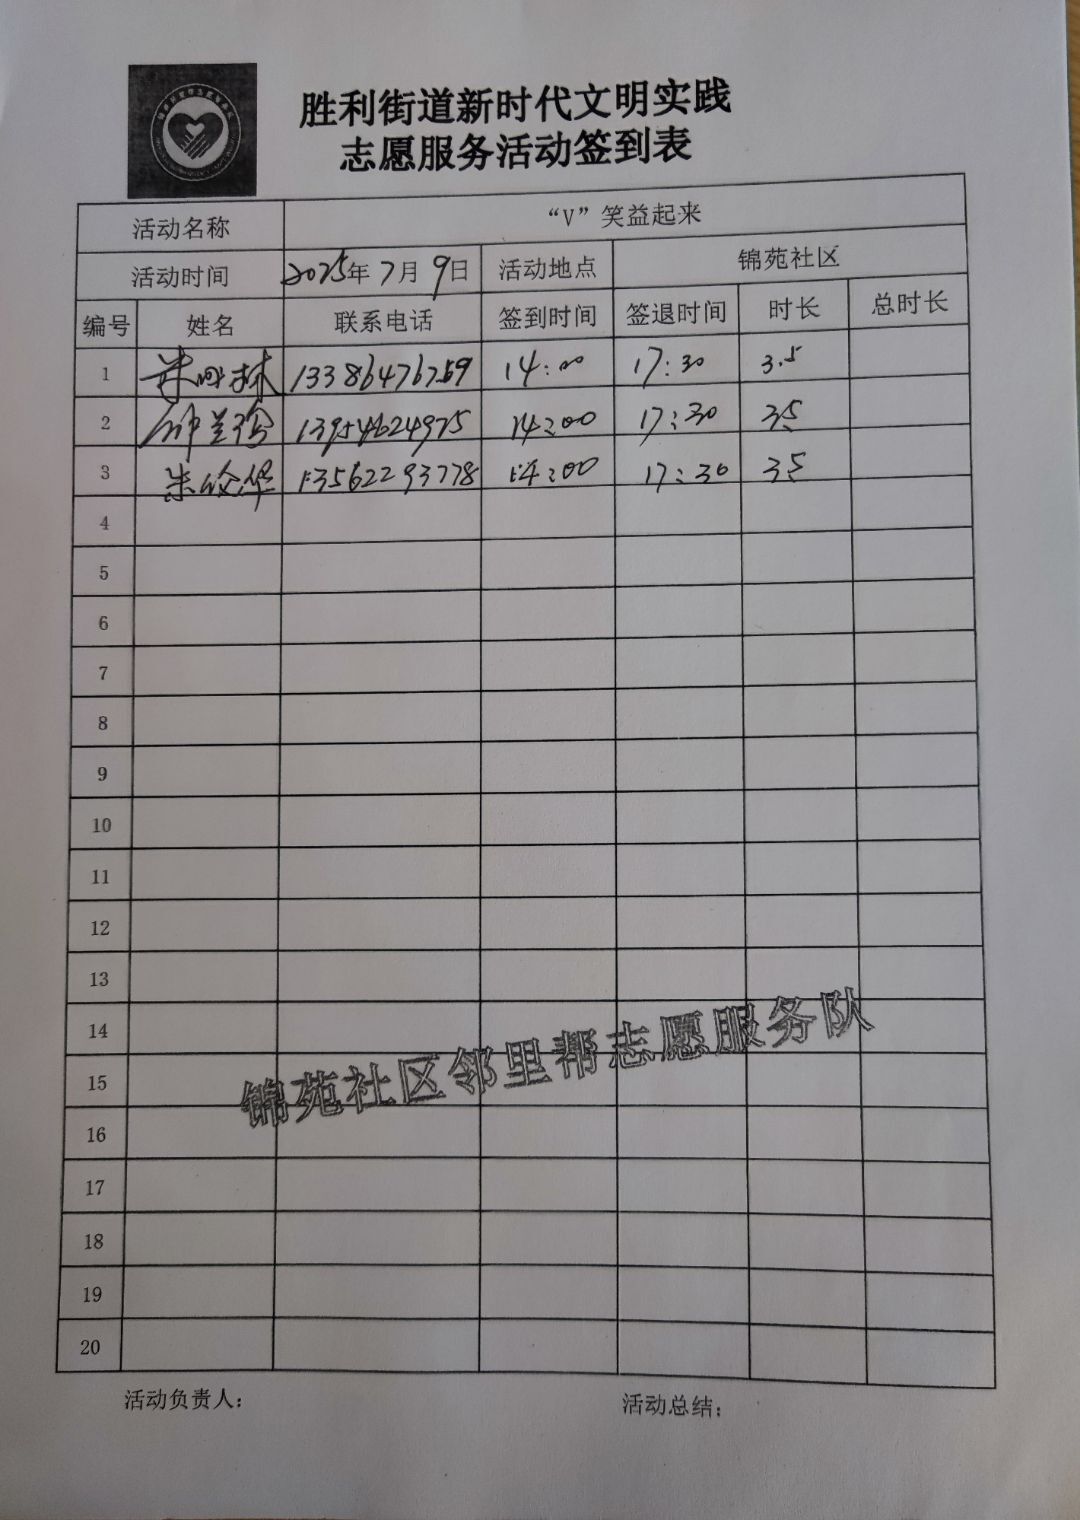 胜利街道新时代文明实践
志愿服务活动签到表
活动名称 “V”笑益起来
活动时间 2025年7月9日 活动地点 锦苑社区
编号 姓名 联系电话 签到时间 签退时间 时长 总时长
1 林 14:00 17:30 3.5
2 13954624975 14:00 17:30 3.5
3 朱 华 13562293778 14:00 17:30 3.5
4
5
6
7
8
9
10
11
12
13
14
15
16
17
18
19
20
锦苑社区邻里帮志愿服务队
活动负责人： 活动总结：